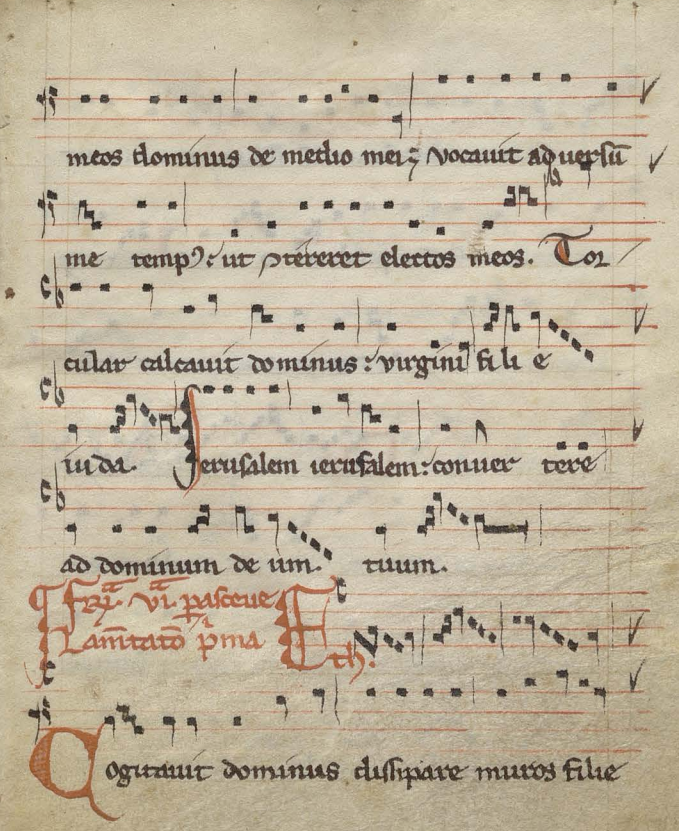 meos dominus de medio mei; vocauit aduersū
me temp⁹: ut ↄtereret electos meos. Tor
cular calcauit dominus: virgini fili e
iuda. Jerusalem ierusalem: conuer tere
ad dominum de um. tuum.
fr̄. vi. pasceue
Lam̄tatō p̄ma Eth.
Cogitauit dominus dissipare muros filie